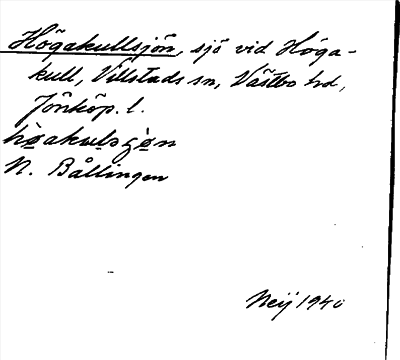 Högakullsjön, sjö vid Höga-
kull, Villstads sn, Västbo hd,
Jönköp. l.
N. Bållingen
Neij 1940